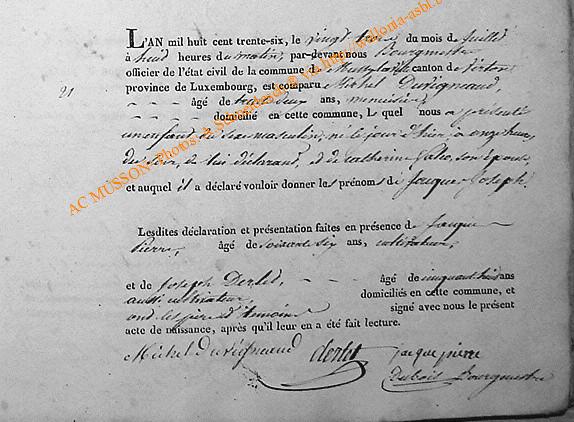 L'AN mil huit cent trente-six, le vingt trois du mois de Juillet
à huit heures du matin, par-devant nous Bourgmestre
officier de l'état civil de la commune de canton de Virton
21
province de Luxembourg, est comparu Michel Duvignaud,
âgé de trente deux ans, menuisier
domicilié en cette commune, Lequel nous a présenté
un enfant du sexe masculin, né le jour d'hier à onze heures
du soir, de lui déclarant, et de Catherine son épouse
et auquel il a déclaré vouloir donner les prénoms de Jacques Joseph.
Lesdites déclaration et présentation faites en présence de Jacque
Pierre, âgé de soixante six ans, cultivateur,
et de Joseph Derlet, âgé de cinquante trois ans
aussi cultivateur domiciliés en cette commune, et
ont les père et témoins signé avec nous le présent
acte de naissance, après qu'il leur en a été fait lecture.
Michel Duvignaud derlet jacque pierre
Dubois Bourgmestre
AC MUSSON - Photos A. Schandeler @ via http://wallonia-asbl.b